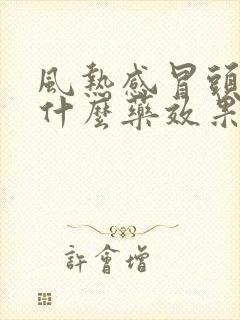 風熱感冒頭
什麼藥效果
許會增